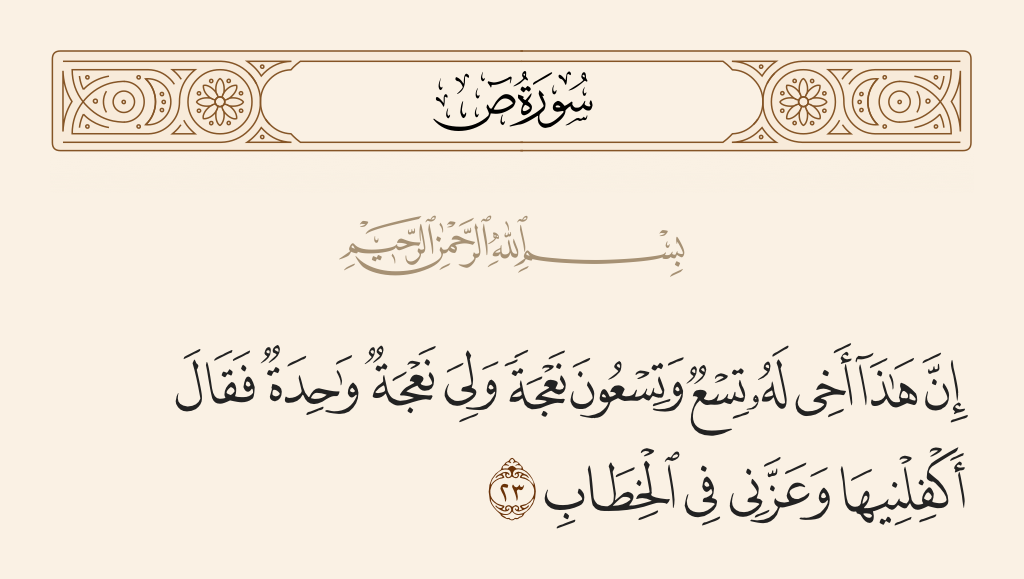 سُورَةُ صٓ
بِسْمِ ٱللَّهِ ٱلرَّحْمَٰنِ ٱلرَّحِيمِ
إِنَّ هَٰذَآ أَخِى لَهُۥ تِسْعٌ وَتِسْعُونَ نَعْجَةً وَلِىَ نَعْجَةٌ وَٰحِدَةٌ فَقَالَ
أَكْفِلْنِيهَا وَعَزَّنِى فِى ٱلْخِطَابِ ٢٣